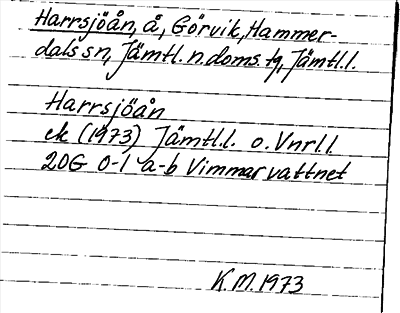 Harrsjöån, å, Görvik, Hammer-
dals sn, Jämtl. n. doms. tg, Jämtl.l.
Harrsjöån
ek (1973) Jämtl.l. o. Vnrl l.
20G 0-1 a-b Vimmarvattnet
K.M. 1973